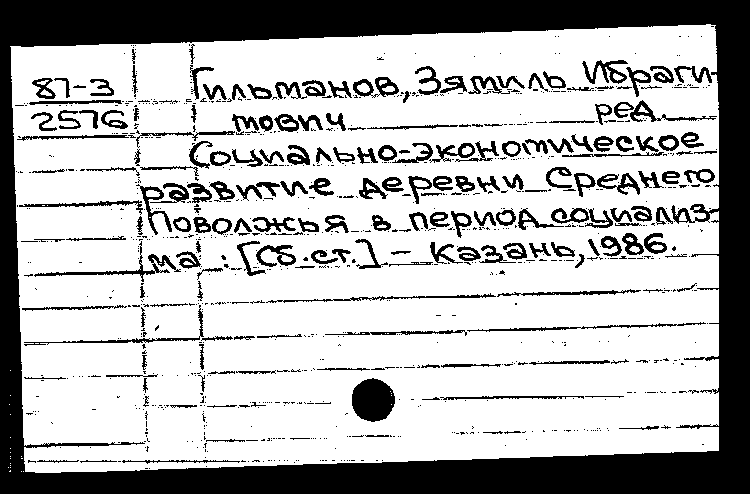 87-3 Гильманов, Зямиль Ибраги-
2576 мович ред.
Социально-экономическое
развитие деревни Среднего
Поволжья в период социализ-
ма : [Сб. ст.] - Казань, 1986.